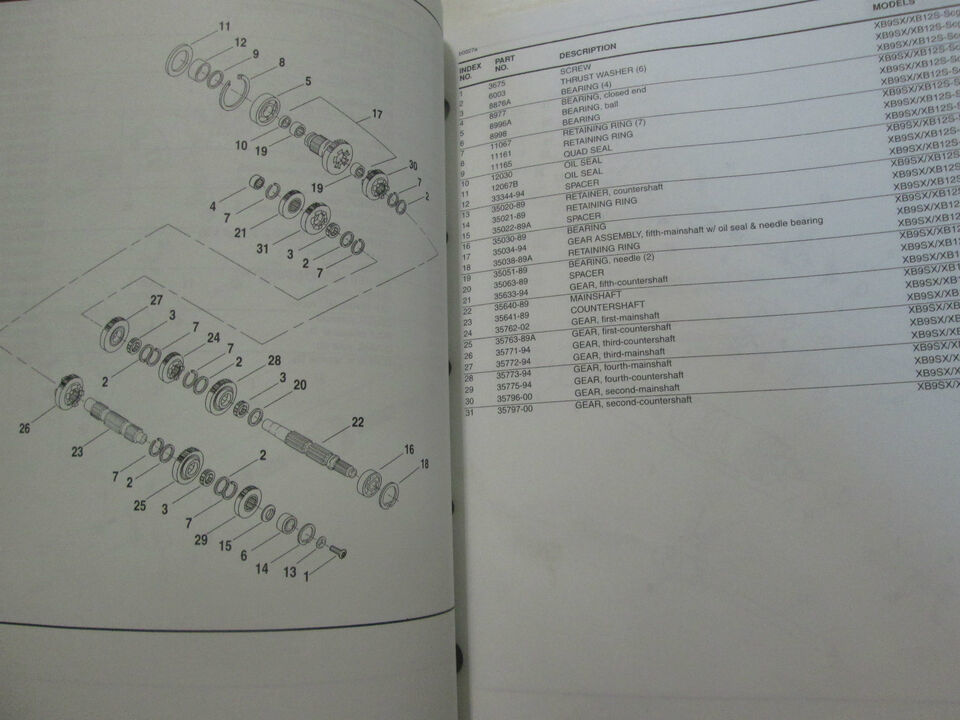 11
12
9
8
5
17
10
19
30
19
7
2
4
7
21
31
3
2
7
27
3
7
24
7
2
28
3
20
2
22
26
23
7
2
25
3
2
7
29
15
6
14
13
1
16
18
b0027a
MODELS
INDEX NO. PART NO. DESCRIPTION
1 3675 SCREW XB9SX/XB12S-Scg
2 6003 THRUST WASHER (6) XB9SX/XB12S-Scg
3 8876A BEARING (4) XB9SX/XB12S-Scg
4 8977 BEARING, closed end XB9SX/XB12S-Sc
5 8996A BEARING, ball XB9SX/XB12S-Sc
6 8998 BEARING XB9SX/XB12S-Sc
7 11067 RETAINING RING (7) XB9SX/XB12S-Sc
8 11161 RETAINING RING XB9SX/XB12S-Sc
9 11165 QUAD SEAL XB9SX/XB12S-S
10 12030 OIL SEAL XB9SX/XB12S-S
11 12067B OIL SEAL XB9SX/XB12S-S
12 33344-94 SPACER XB9SX/XB12S-
13 35020-89 RETAINER, countershaft XB9SX/XB12S-
14 35021-89 RETAINING RING XB9SX/XB12S-
15 35022-89A SPACER XB9SX/XB12S
16 35030-89 BEARING XB9SX/XB12S
17 35034-94 GEAR ASSEMBLY, fifth-mainshaft w/ oil seal & needle bearing XB9SX/XB12S
18 35038-89A RETAINING RING XB9SX/XB12
19 35051-89 BEARING, needle (2) XB9SX/XB12
20 35063-89 SPACER XB9SX/XB12
21 35633-94 GEAR, fifth-countershaft XB9SX/XB12
22 35640-89 MAINSHAFT XB9SX/XB1
23 35641-89 COUNTERSHAFT XB9SX/XB1
24 35762-02 GEAR, first-mainshaft XB9SX/XB1
25 35763-89A GEAR, first-countershaft XB9SX/XB
26 35771-94 GEAR, third-countershaft XB9SX/XB
27 35772-94 GEAR, third-mainshaft XB9SX/XB
28 35773-94 GEAR, fourth-mainshaft XB9SX/XB
29 35775-94 GEAR, fourth-countershaft XB9SX/X
30 35796-00 GEAR, second-mainshaft XB9SX/X
31 35797-00 GEAR, second-countershaft XB9SX/X